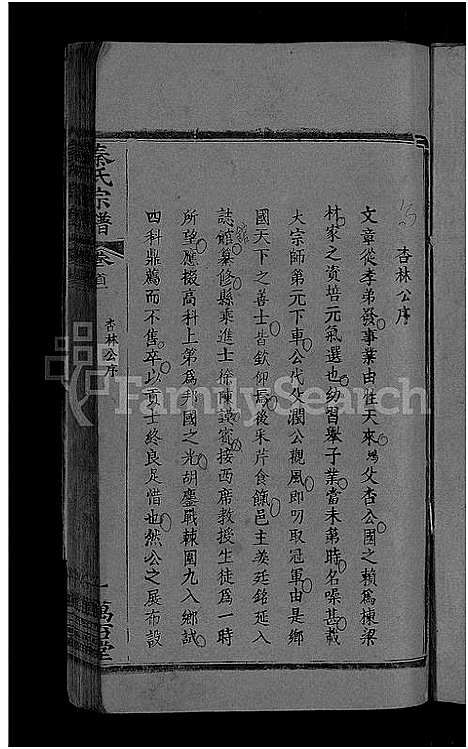 杏林公序
文章從孝弟發事業由性天來鴻父杏公國之賴爲棟梁
林家之資培元氣選也幼習擧子業當未第時名噪甚載
大宗師第元下車公代父潤公觀風即叨取冠軍由是鄉
國天下之善士皆欽仰焉後采芹食餼邑主姜廷銘延入
誌館纂修縣乘進士徐陳謨賓接西席教授生徒爲一時
所望應掇高科上第爲邦國之光胡鏖戰棘圍九入鄉試
四科鼎薦而不售卒以貢士終良足惜也然公之展布設
秦氏宗譜
卷首
杏林公序
一
萬石堂
FamilySearch